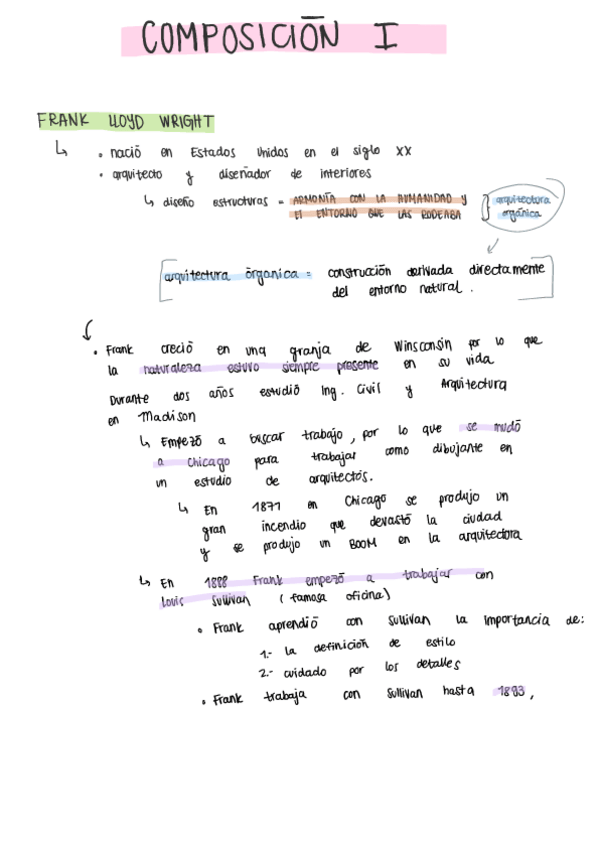 COMPOSICIÓN I
FRANK LLOYD WRIGHT
↳ • nació en Estados Unidos en el siglo XX
• arquitecto y diseñador de interiores
↳ diseño estructuras = ARMONÍA CON LA HUMANIDAD Y
EL ENTORNO QUE LAS RODEABA
arquitectura
orgánica
arquitectura órganica = construcción derivada directamente
del entorno natural.
• Frank creció en una granja de Winsconsin por lo que
la naturaleza estuvo siempre presente en su vida
Durante dos años estudió Ing. Civil y Arquitectura
en Madison
↳ Empezó a buscar trabajo, por lo que se mudó
a Chicago para trabajar como dibujante en
un estudio de arquitectos.
↳ En 1871 en Chicago se produjo un
gran incendio que devastó la ciudad
y se produjo un BOOM en la arquitectora
↳ En 1888 Frank empezó a trabajar con
Louis Sullivan (famosa oficina)
• Frank aprendió con Sullivan la importancia de:
1.- la definición de estilo
2.- cuidado por los detalles
• Frank trabaja con Sullivan hasta 1893,